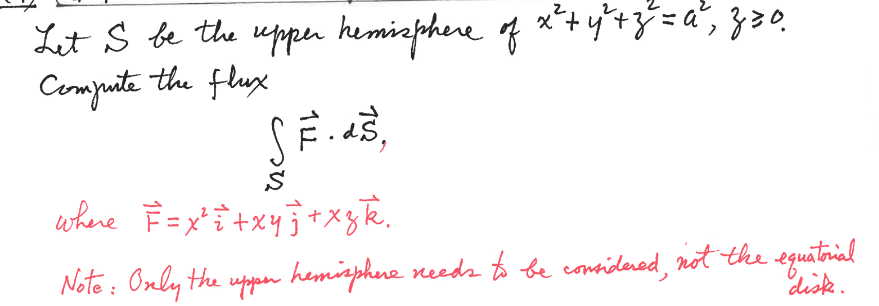 Let S be the upper hemisphere of x²+y²+z²=a², z≥0.
Compute the flux
∫_S F⃗ · dS⃗,
where F⃗ = x² i⃗ + xy j⃗ + xz k⃗.
Note: Only the upper hemisphere needs to be considered, not the equatorial
disk.